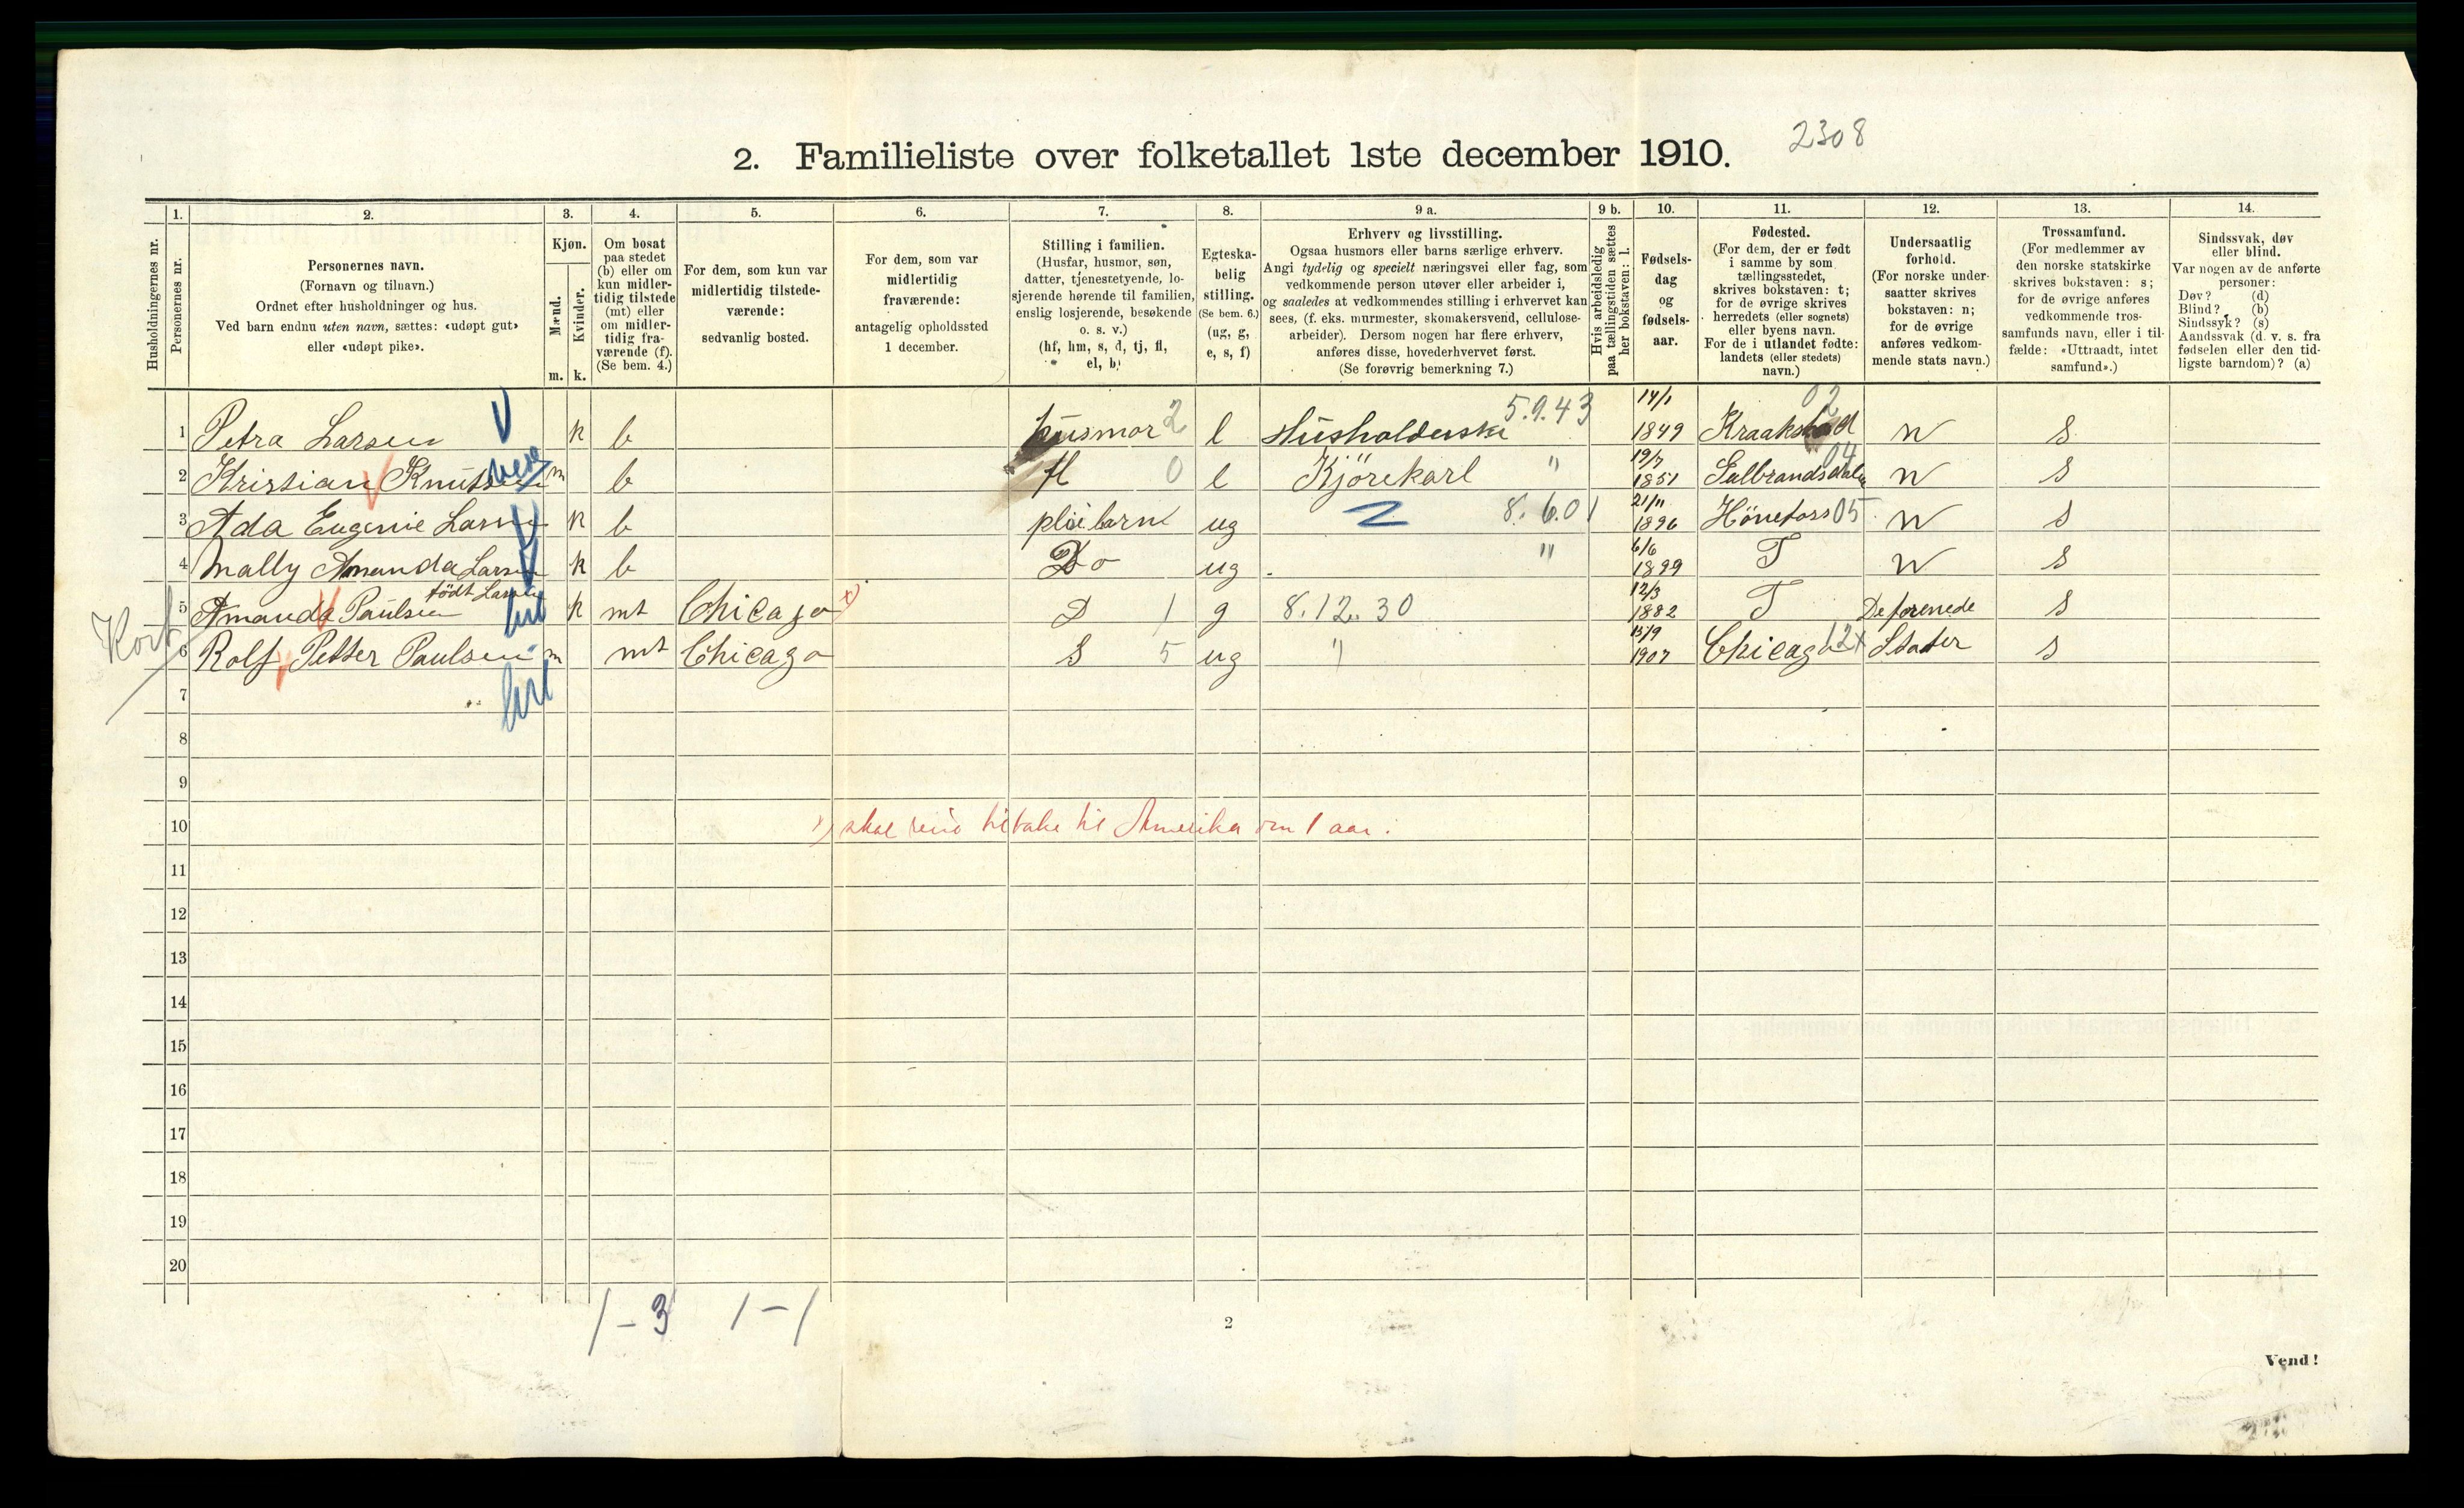 2. Familieliste over folketallet 1ste december 1910.
2308
Husholdningernes nr.
1.
Personernes nr.
2.
Personernes navn.
(Fornavn og tilnavn.)
Ordnet efter husholdninger og hus.
Ved barn endnu uten navn, sættes: «udøpt gut»
eller «udøpt pike».
3.
Kjøn.
Mænd.
Kvinder.
m.
k.
4.
Om bosat
paa stedet
(b) eller om
kun midler-
tidig tilstede
(mt) eller
om midler-
tidig fra-
værende (f).
(Se bem. 4.)
5.
For dem, som kun var
midlertidig tilstede-
værende:
sedvanlig bosted.
6.
For dem, som var
midlertidig
fraværende:
antagelig opholdssted
1 december.
7.
Stilling i familien.
(Husfar, husmor, søn,
datter, tjenestetyende, lo-
sjerende hørende til familien,
enslig losjerende, besøkende
o. s. v.)
(hf, hm, s, d, tj, fl,
el, b)
8.
Egteska-
belig
stilling.
(Se bem. 6.)
(ug, g,
e, s, f)
9 a.
Erhverv og livsstilling.
Ogsaa husmors eller barns særlige erhverv.
Angi tydelig og specielt næringsvei eller fag, som
vedkommende person utøver eller arbeider i,
og saaledes at vedkommendes stilling i erhvervet kan
sees, (f. eks. murmester, skomakersvend, cellulose-
arbeider). Dersom nogen har flere erhverv,
anføres disse, hovederhvervet først.
(Se forøvrig bemerkning 7.)
9 b.
Hvis arbeidsledig
paa tællingstiden sættes
her bokstaven: l.
10.
Fødsels-
dag
og
fødsels-
aar.
11.
Fødested.
(For dem, der er født
i samme by som
tællingsstedet,
skrives bokstaven: t;
for de øvrige skrives
herredets (eller sognets)
eller byens navn.
For de i utlandet fødte:
landets (eller stedets)
navn.)
12.
Undersaatlig
forhold.
(For norske under-
saatter skrives
bokstaven: n;
for de øvrige
anføres vedkom-
mende stats navn.)
13.
Trossamfund.
(For medlemmer av
den norske statskirke
skrives bokstaven: s;
for de øvrige anføres
vedkommende tros-
samfunds navn, eller i til-
fælde: «Uttraadt, intet
samfund».)
14.
Sindssvak, døv
eller blind.
Var nogen av de anførte
personer:
Døv? (d)
Blind? (b)
Sindssyk? (s)
Aandssvak (d. v. s. fra
fødselen eller den tid-
ligste barndom)? (a)
1 Petra Larsen k b husmor 2 e Husholderske 5.9.43 14/1 1849 Kraakstad 02 n s
2 Kristian Knutsen m b fl 0 e Kjørekarl " 19/7 1851 Gulbrandsdalen 04 n s
3 Ada Eugenie Larsen k b pleiebarn ug 8.6.01 21/11 1896 Hönefoss 05 n s
4 Mally Amanda Larsen k b Do ug " 6/6 1899 T n s
5 Amanda Paulsen födt Larsen k mt Chicago x) D 1 g 8.12.30 12/3 1882 T De forenede s
Kort
6 Rolf Petter Paulsen m mt Chicago S 5 ug " 13/9 1907 Chicago 12x Stater s
7
8
9
10 x) skal reise tilbake til Amerika om 1 aar.
11
12
13
14
15
16
17
18
19
20
1 - 3 1 - 1
2
Vend!